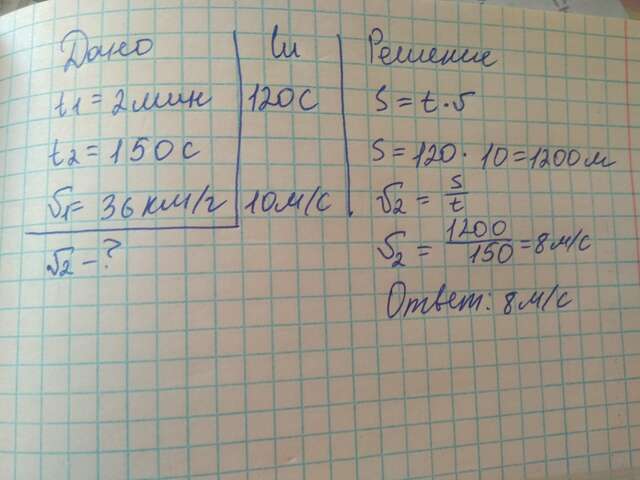 Дано
t1 = 2 мин
t2 = 150 с
υ1 = 36 км/г
υ2 - ?
Си
120 с
10 м/с
Решение
S = t · υ
S = 120 · 10 = 1200 м
υ2 = s/t
υ2 = 1200/150 = 8 м/с
Ответ: 8 м/с